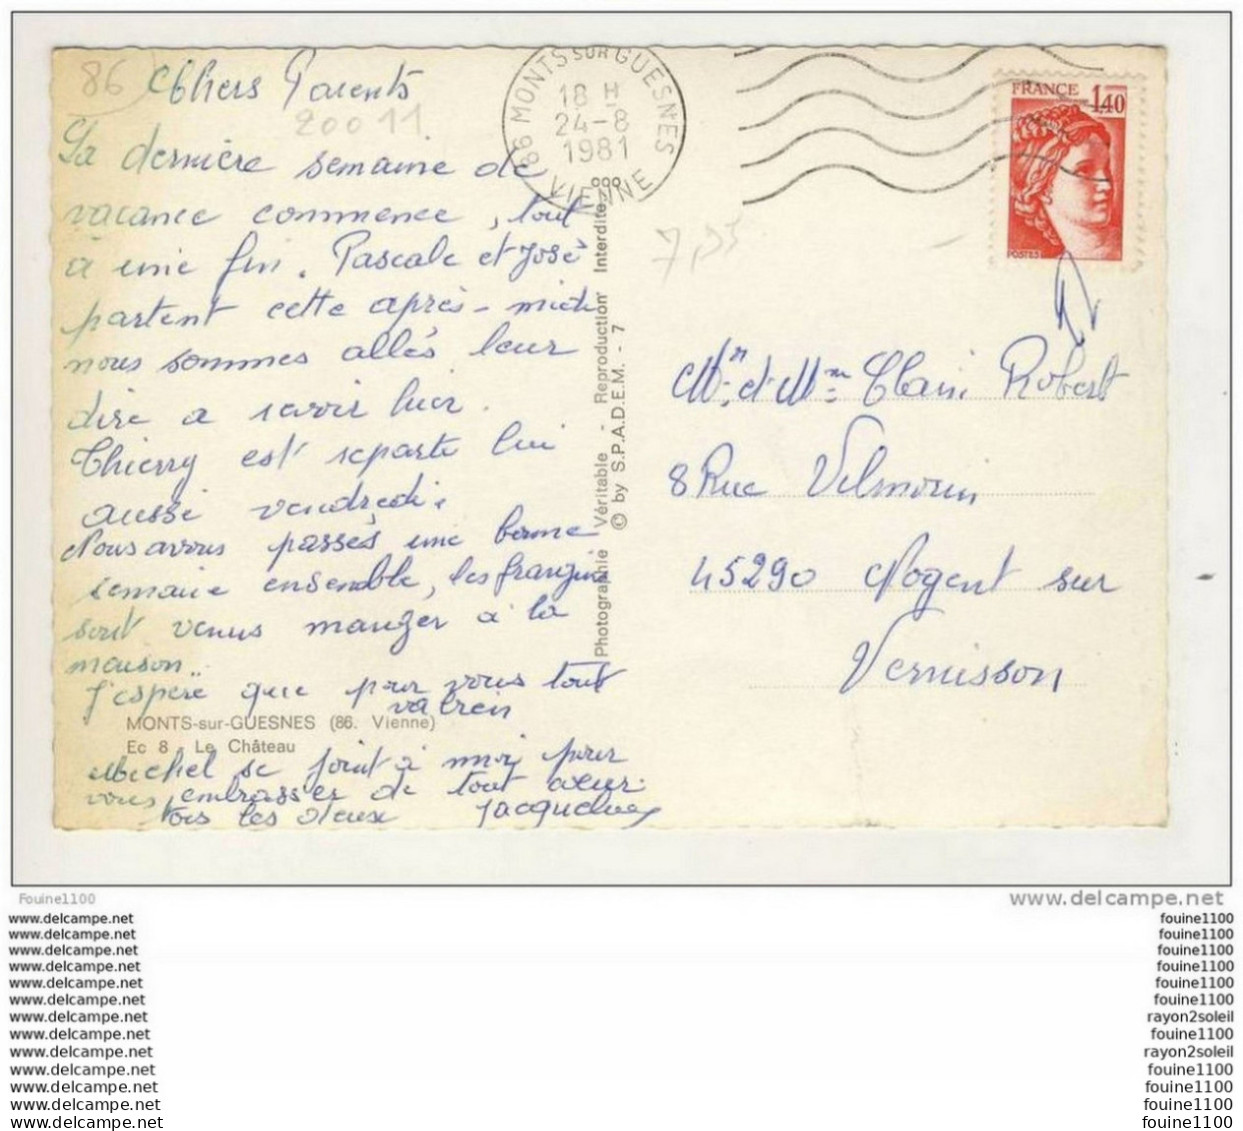 86
Chers Parents
20011
La dernière semaine de
vacance commence, tout
à une fin. Pascale et José
partent cette après-midi
nous sommes allés leur
dire a revoir hier.
Thierry est reparti lui
aussi vendredi.
Nous avons passés une bonne
semaine ensemble, les frangins
sont venus manger à la
maison..
J'espere que pour vous tout
va bien
MONTS-sur-GUESNES (86. Vienne)
Ec 8 - Le Château
Michel se joint à moi pour
vous embrasser de tout cœur
tous les deux Jacqueline
Photographie Véritable - Reproduction Interdite
© by S.P.A.D.E.M. - 7
86 MONTS SUR GUESNES
18 H
24-8
1981
VIENNE
FRANCE
1,40
POSTES
Mr et Mme Clain Robert
8 Rue Vilmorin
45290 Nogent sur
Vernisson
Fouine1100
www.delcampe.net
www.delcampe.net
fouine1100
www.delcampe.net
fouine1100
www.delcampe.net
fouine1100
www.delcampe.net
fouine1100
www.delcampe.net
fouine1100
www.delcampe.net
fouine1100
www.delcampe.net
rayon2soleil
www.delcampe.net
fouine1100
www.delcampe.net
rayon2soleil
www.delcampe.net
fouine1100
www.delcampe.net
fouine1100
www.delcampe.net
fouine1100
www.delcampe.net
fouine1100